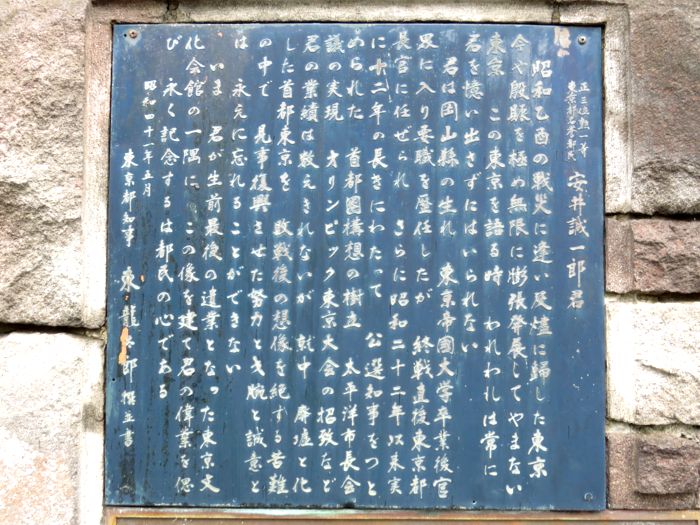 正三位勲一等
東京都名誉都民
安井誠一郎君
昭和乙酉の戦火に逢い灰燼に歸した東京
今や殷賑を極め無限に膨張発展してやまない
東京 この東京を語る時 われわれは常に
君を憶い出さずにはいられない
君は岡山縣の生れ 東京帝國大学卒業後官
界に入り要職を歴任したが 終戦直後東京都
長官に任ぜられ さらに昭和二十二年以来実
に十二年の長きにわたって 公選知事をつと
められた 首都圏構想の樹立 太平洋市長会
議の実現 オリンピック東京大会の招致など
君の業績は数えきれないが 就中 廃墟と化
した首都東京を 敗戦後の想像を絶する苦難
の中で 見事復興させた努力と才腕と誠意と
は 永えに忘れることができない
いま 君が生前最後の遺業となった東京文
化会館の一隅に この像を建て君の偉業を偲
び 永く記念するは都民の心である
昭和四十一年五月
東京都知事 東 龍太郎 撰並書